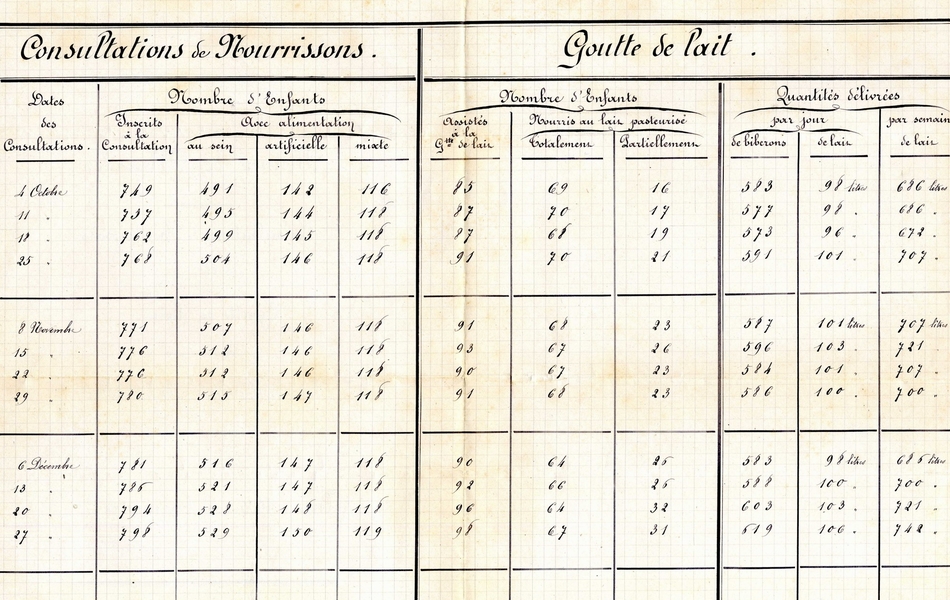 Consultations de Nourrissons. Goutte de lait.
Dates des Consultations. Nombre d'Enfants Nombre d'Enfants Quantités délivrées
Inscrits à la Consultation Avec alimentation Assistés à la Gtte de lait Nourris au lait pasteurisé par jour par semain
au sein artificielle mixte Totalement Partiellement de biberons de lait de lait
4 Octobre 749 491 142 116 85 69 16 583 98 litres 686 litres
11 " 757 495 144 118 87 70 17 577 98 " 686 "
18 " 762 499 145 118 87 68 19 573 96 " 672 "
25 " 768 504 146 118 91 70 21 591 101 " 707 "
8 Novembre 771 507 146 118 91 68 23 587 101 litres 707 litres
15 " 776 512 146 118 93 67 26 596 103 " 721 "
22 " 776 512 146 118 90 67 23 584 101 " 707 "
29 " 780 515 147 118 91 68 23 586 100 " 700 "
6 Décembre 781 516 147 118 90 64 26 583 98 litres 686 litres
13 " 786 521 147 118 92 66 26 588 100 " 700 "
20 " 794 528 148 118 96 64 32 603 103 " 721 "
27 " 798 529 150 119 98 67 31 619 106 " 742 "